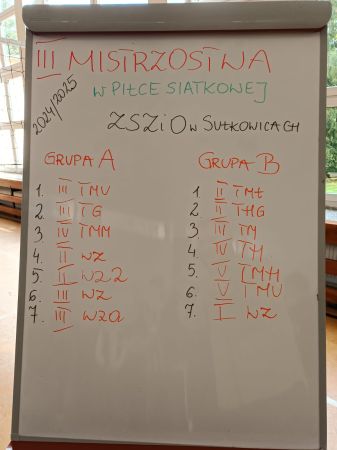 III MISTRZOSTWA
W PIŁCE SIATKOWEJ
2024/2025
ZSZiO W SUŁKOWICACH
GRUPA A
1. III TMV
2. III TG
3. IV TMM
4. II WZ
5. WZ2
6. III WZ
7. III WZa
GRUPA B
1. II TMŁ
2. II THG
3. III TM
4. IV TH
5. V TMH
6. V TMV
7. I WZ